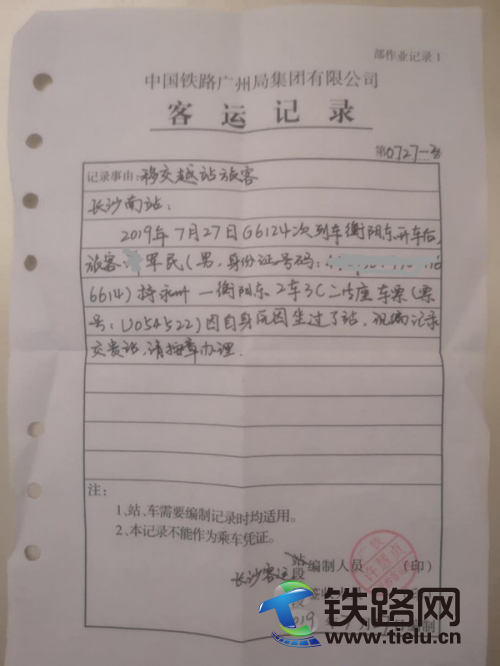 部作业记录1
中国铁路广州局集团有限公司
客运记录
第0727-
记录事由:移交越站旅客
长沙南站:
2019年7月27日G6124次列车衡阳东开车后,
旅客: 军民(男,身份证号码:
6614)持永州—衡阳东2车3C二等座车票(票
号:U054522)因自身原因坐过了站,现编记录
交贵站,请按章办理.
注:
1、站、车需要编制记录时均适用。
2、本记录不能作为乘车凭证。
长沙客运 站段 编制人员 (印)
2019年
铁路网
www.tielu.cn